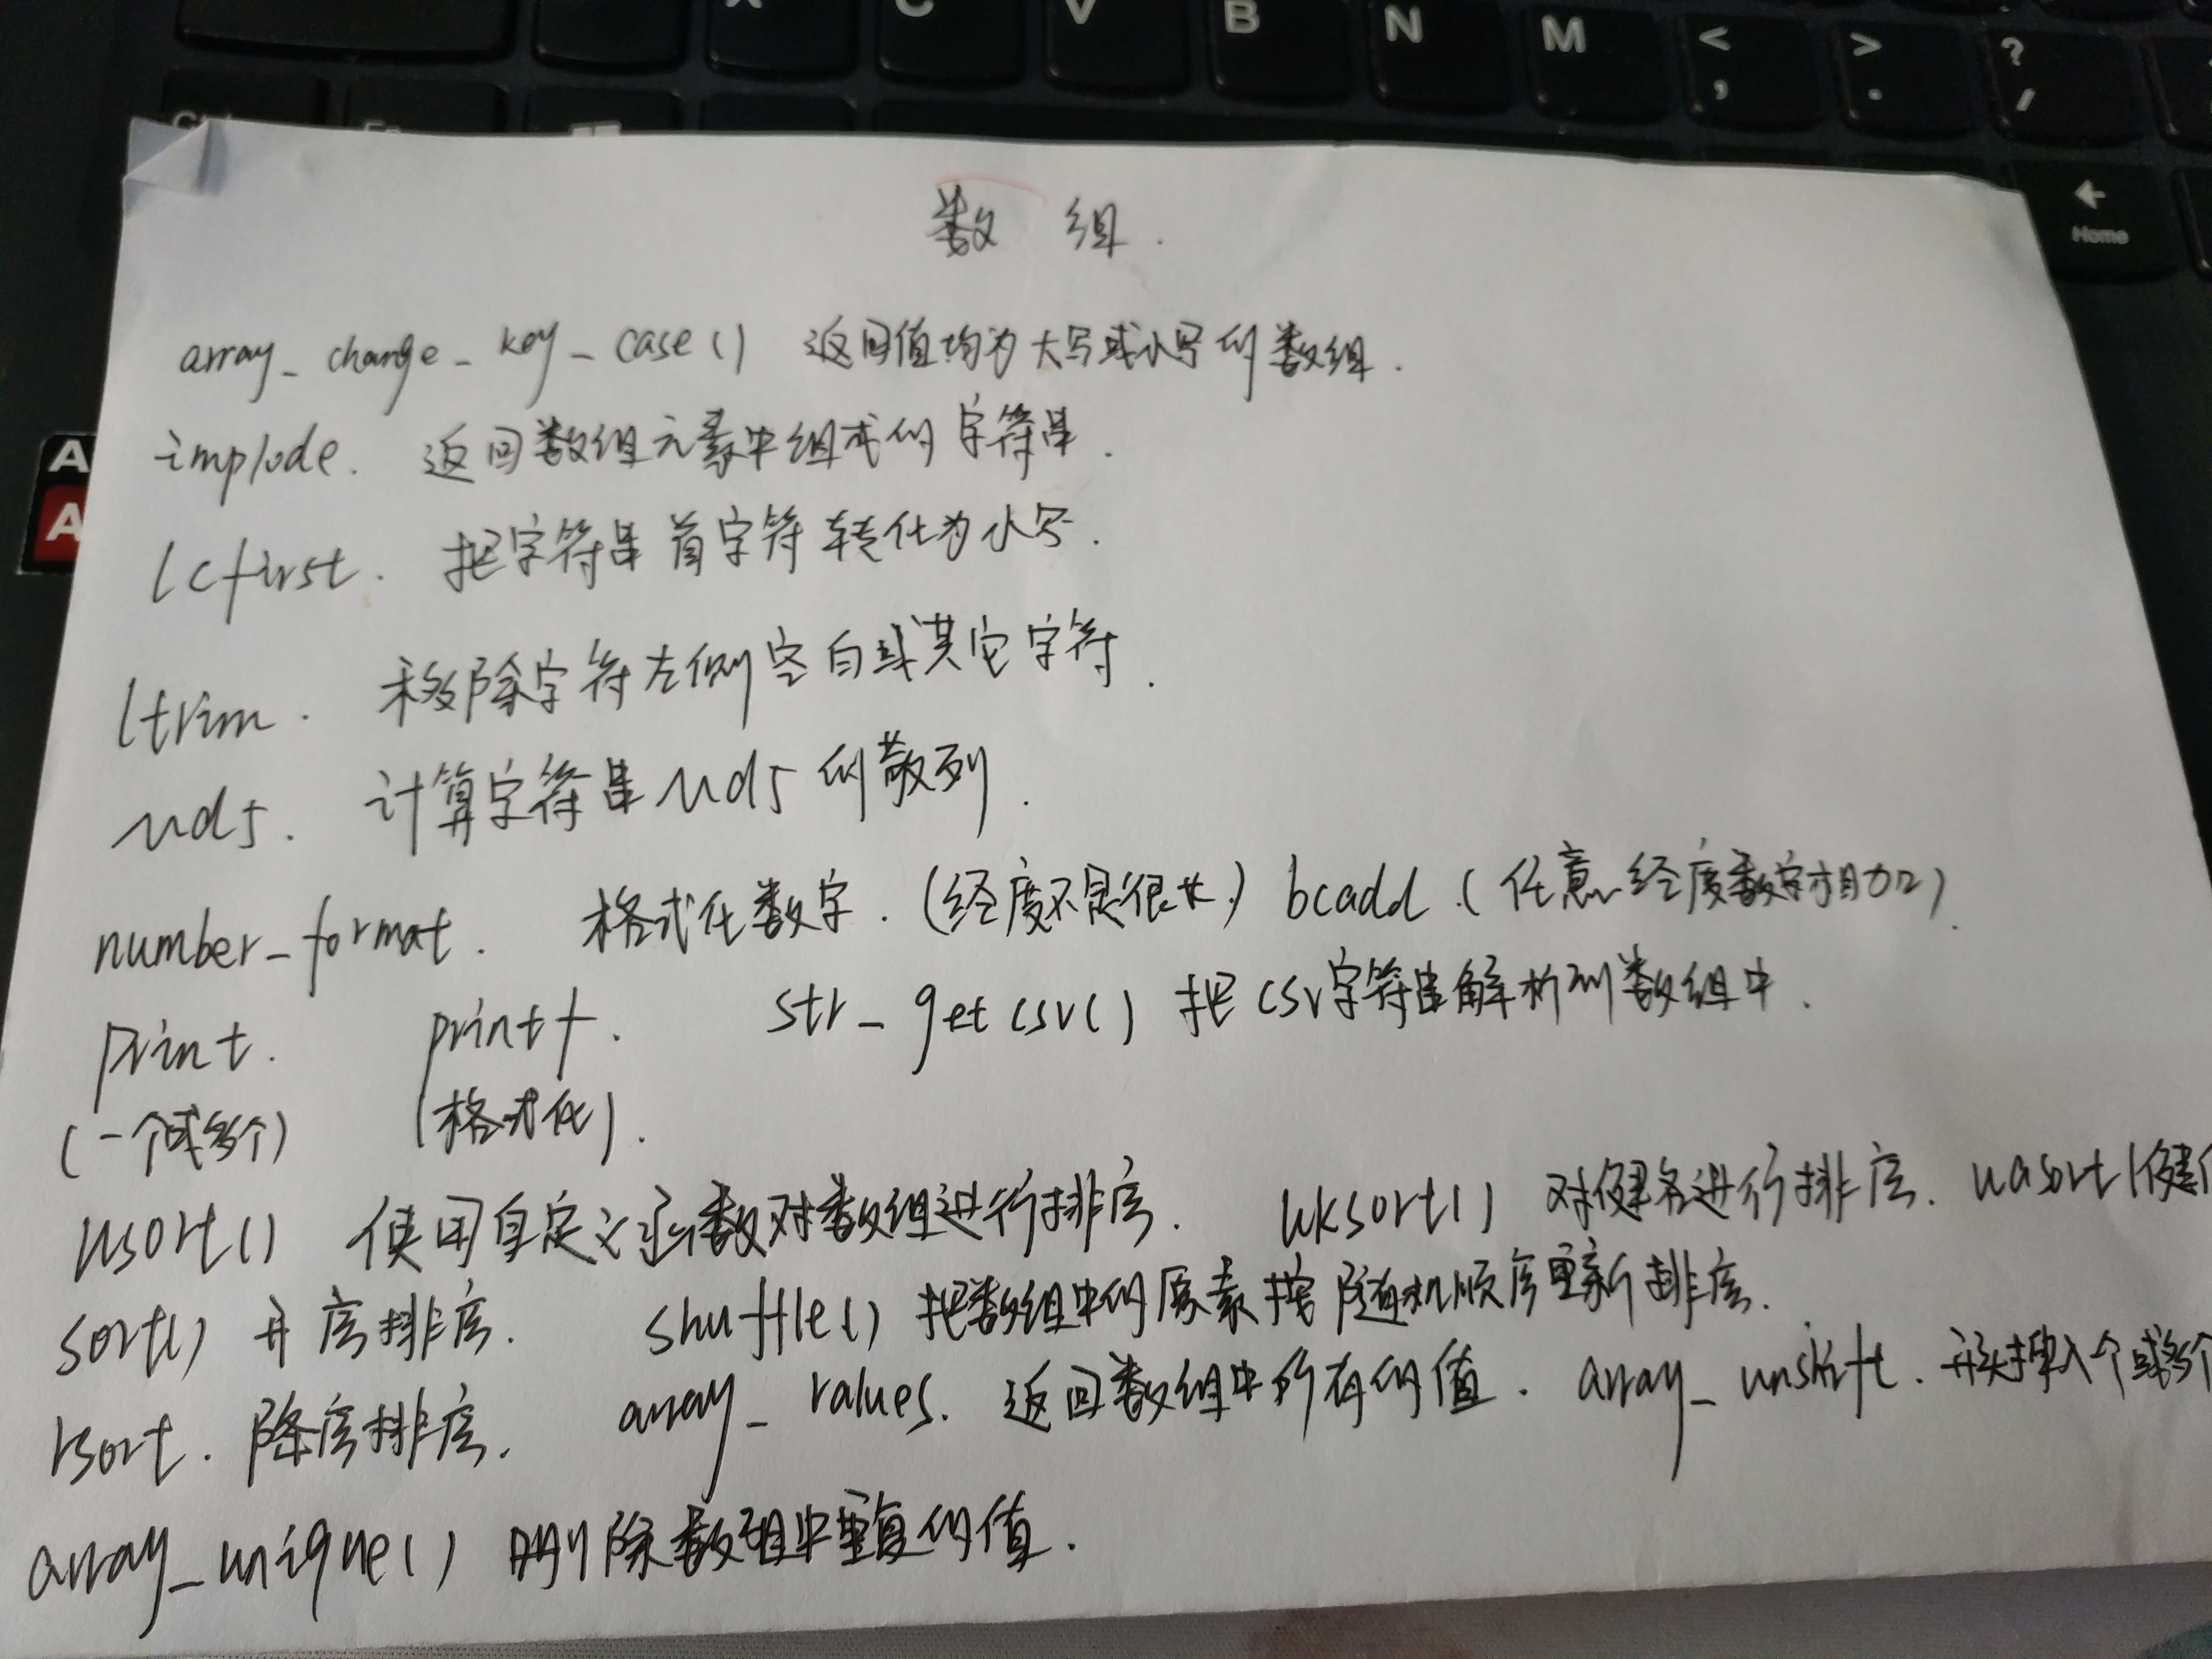 X C V B N M < , > . ? /
← Home
A
A
数 组.
array_change_key_case() 返回值均为大写或小写的数组.
implode. 返回数组元素中组成的字符串.
lcfirst. 把字符串首字符转化为小写.
ltrim. 移除字符左侧空白或其它字符.
md5. 计算字符串md5的散列.
number_format. 格式化数字.(经度不是很大.) bcadd.(任意经度数字相加).
print. printf. str_getcsv() 把csv字符串解析到数组中.
(一个或多个) (格式化).
usort() 使用自定义函数对数组进行排序. uksort() 对健名进行排序. uasort(健
sort() 升序排序. shuffle() 把数组中的原素按随机顺序重新排序.
rsort. 降序排序. array_values. 返回数组中所有的值. array_unshift. 开头插入个或多个
array_unique() 删除数组中重复的值.